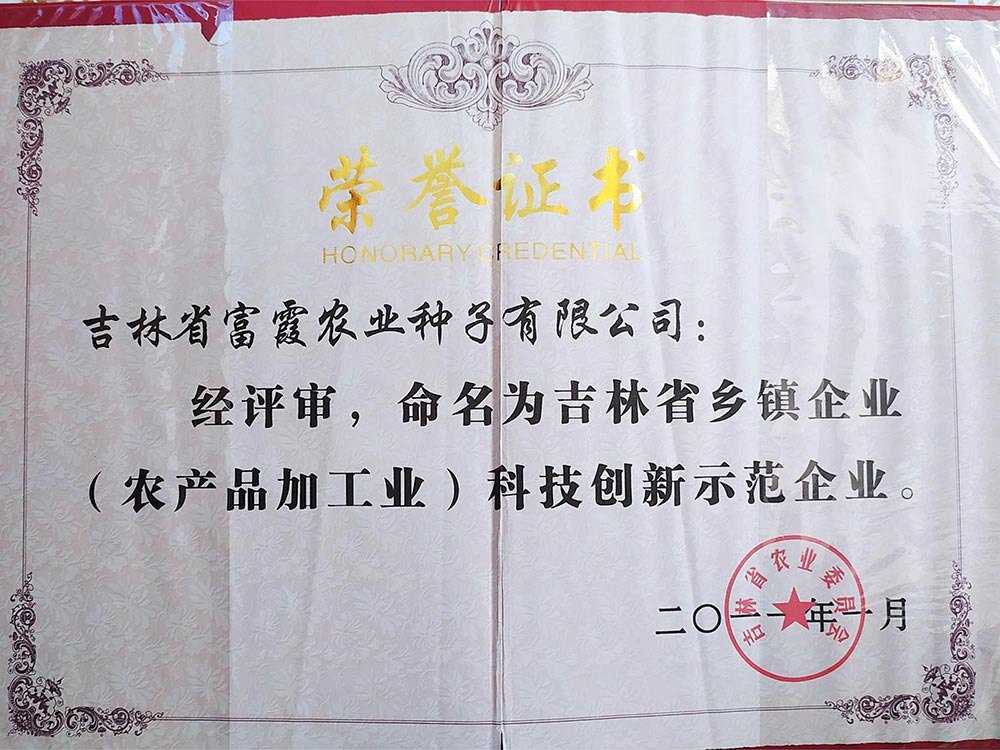 荣誉证书
HONORARY CREDENTIAL
吉林省富霞农业种子有限公司：
经评审，命名为吉林省乡镇企业
（农产品加工业）科技创新示范企业。
吉林省农业委员会
二〇一一年一月